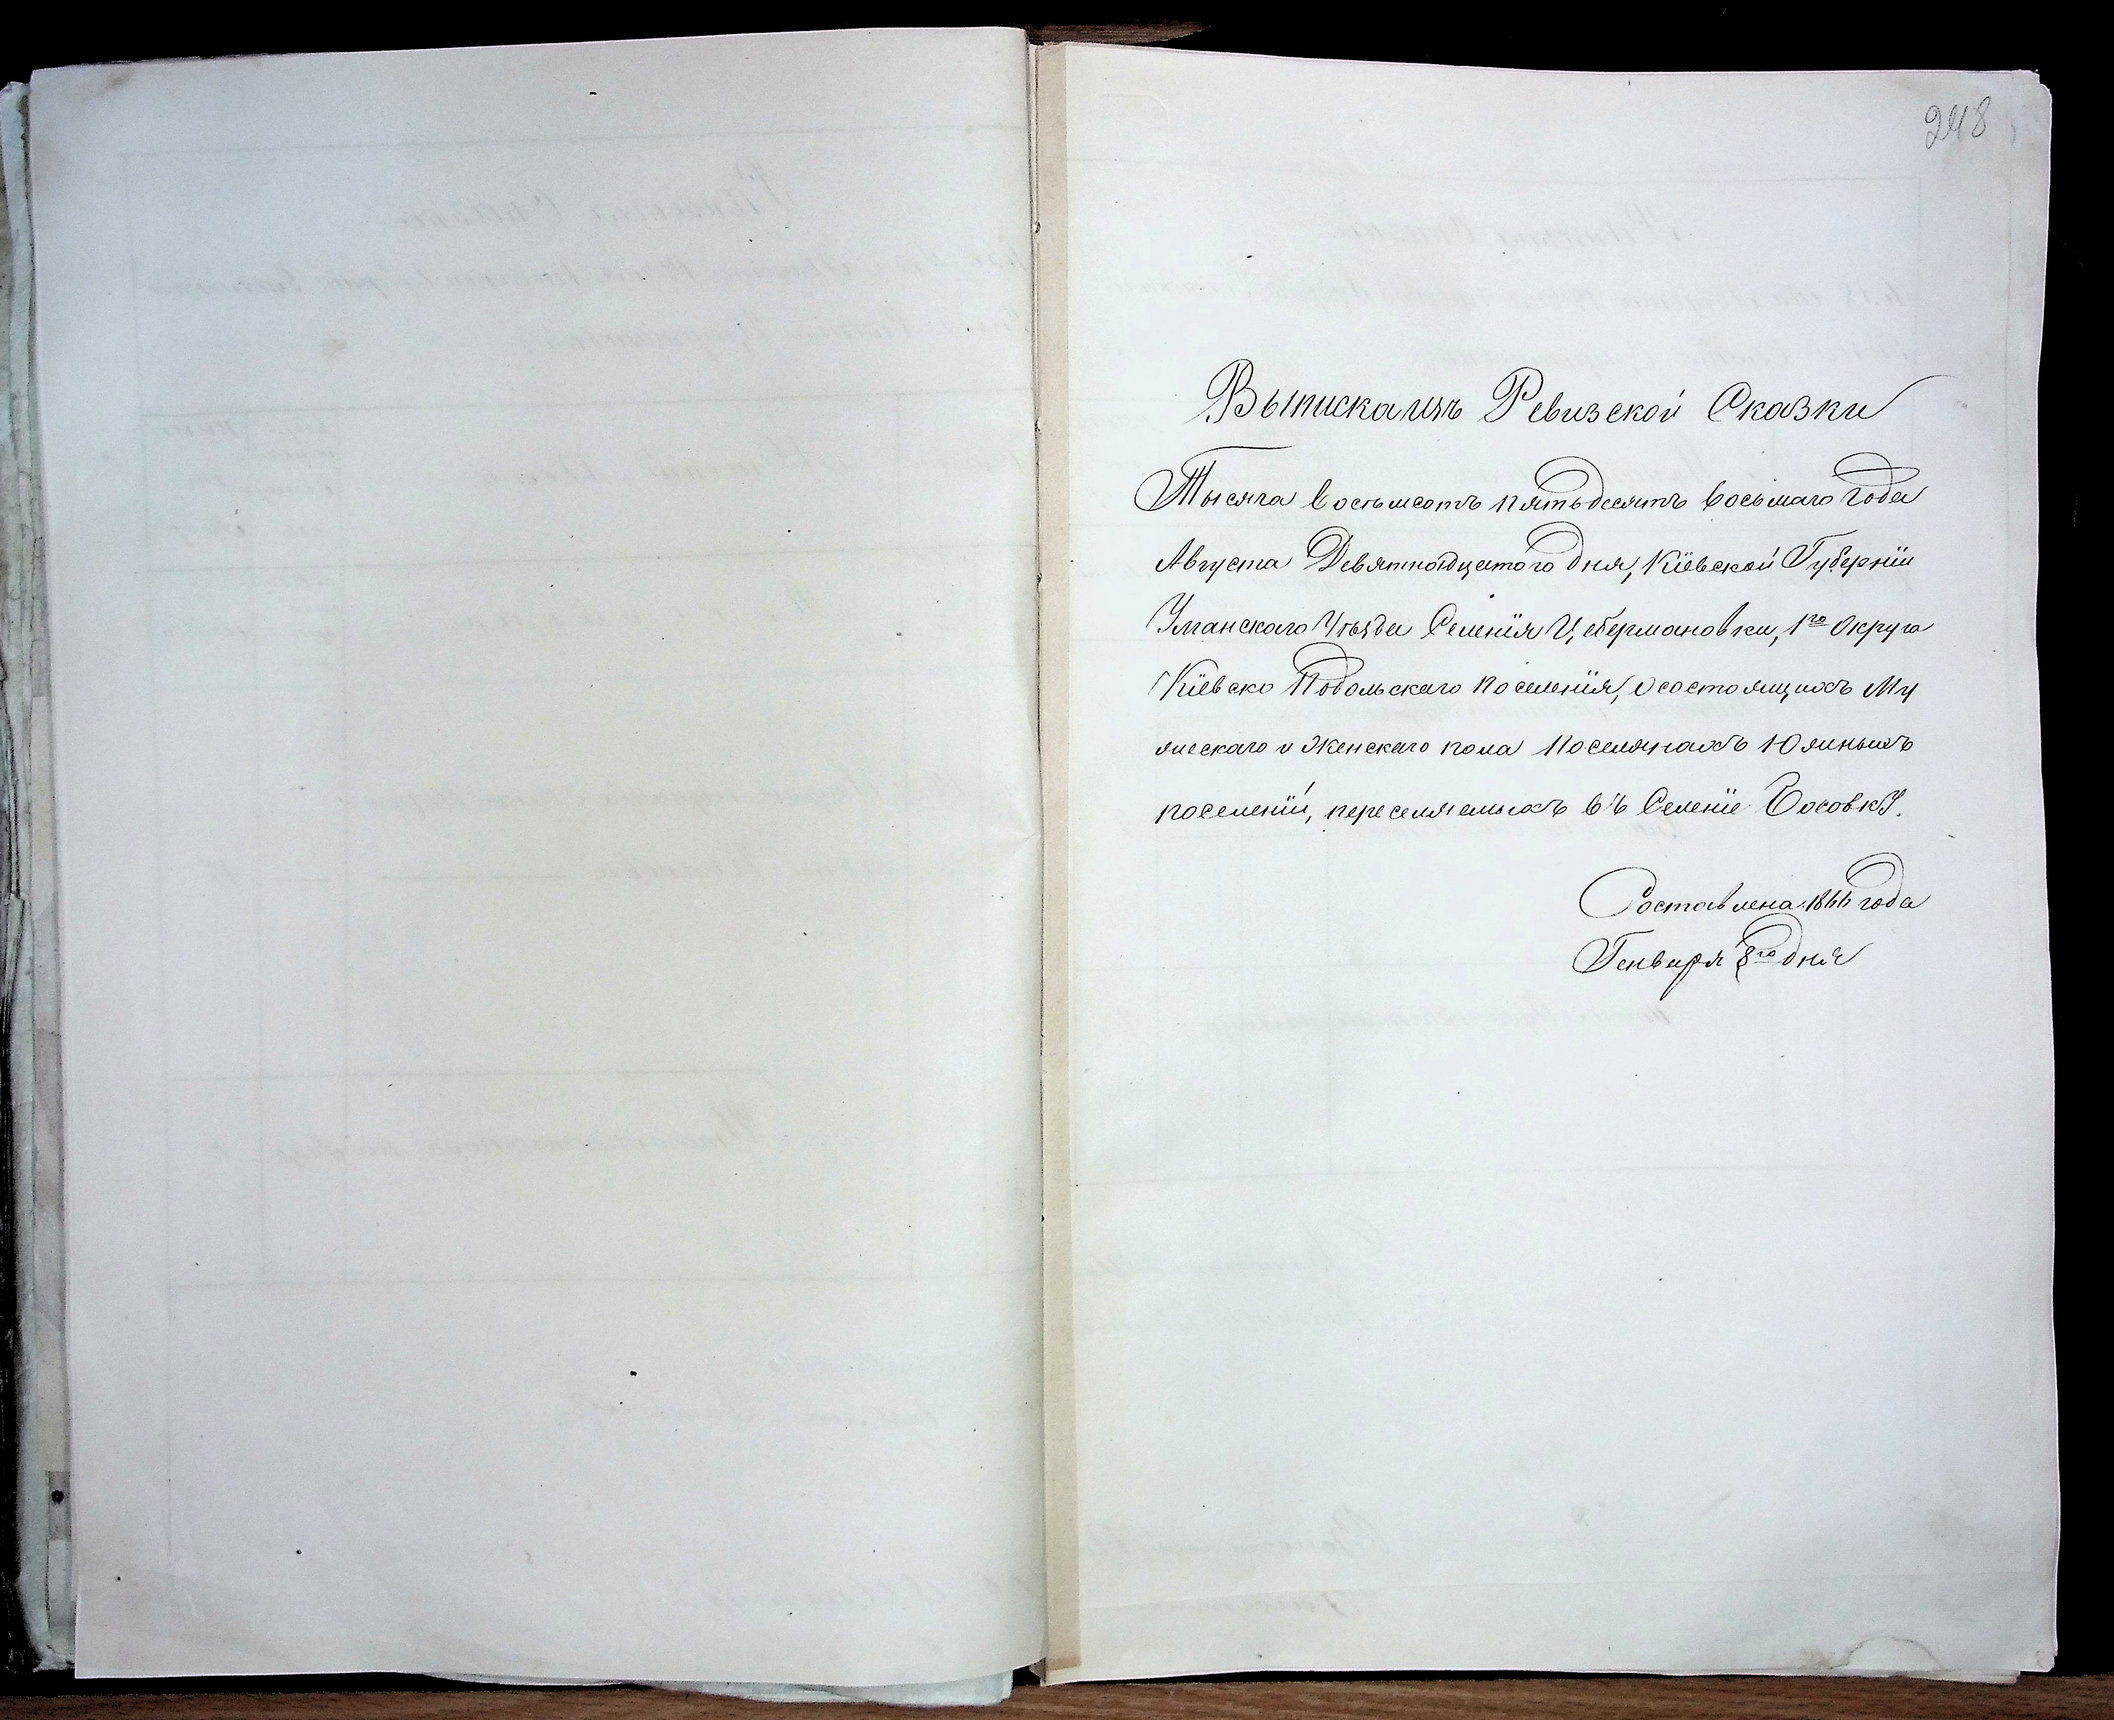 248
Выписка изъ Ревизской Сказки
Тысяча восьмсотъ пятьдесятъ восьмаго года
Августа Девятнадцатого дня, Кіевской Губерніи
Уманскаго Уѣзда Селенія Цебермановки, 1го Округа
Кіевско Подольскаго поселенія, о состоящихъ Му
жескаго и Женскаго пола Поселянахъ Южныхъ
поселеній, переселяемыхъ въ Селеніе Босовку.
Составлена 1866 года
Генваря 8го дня